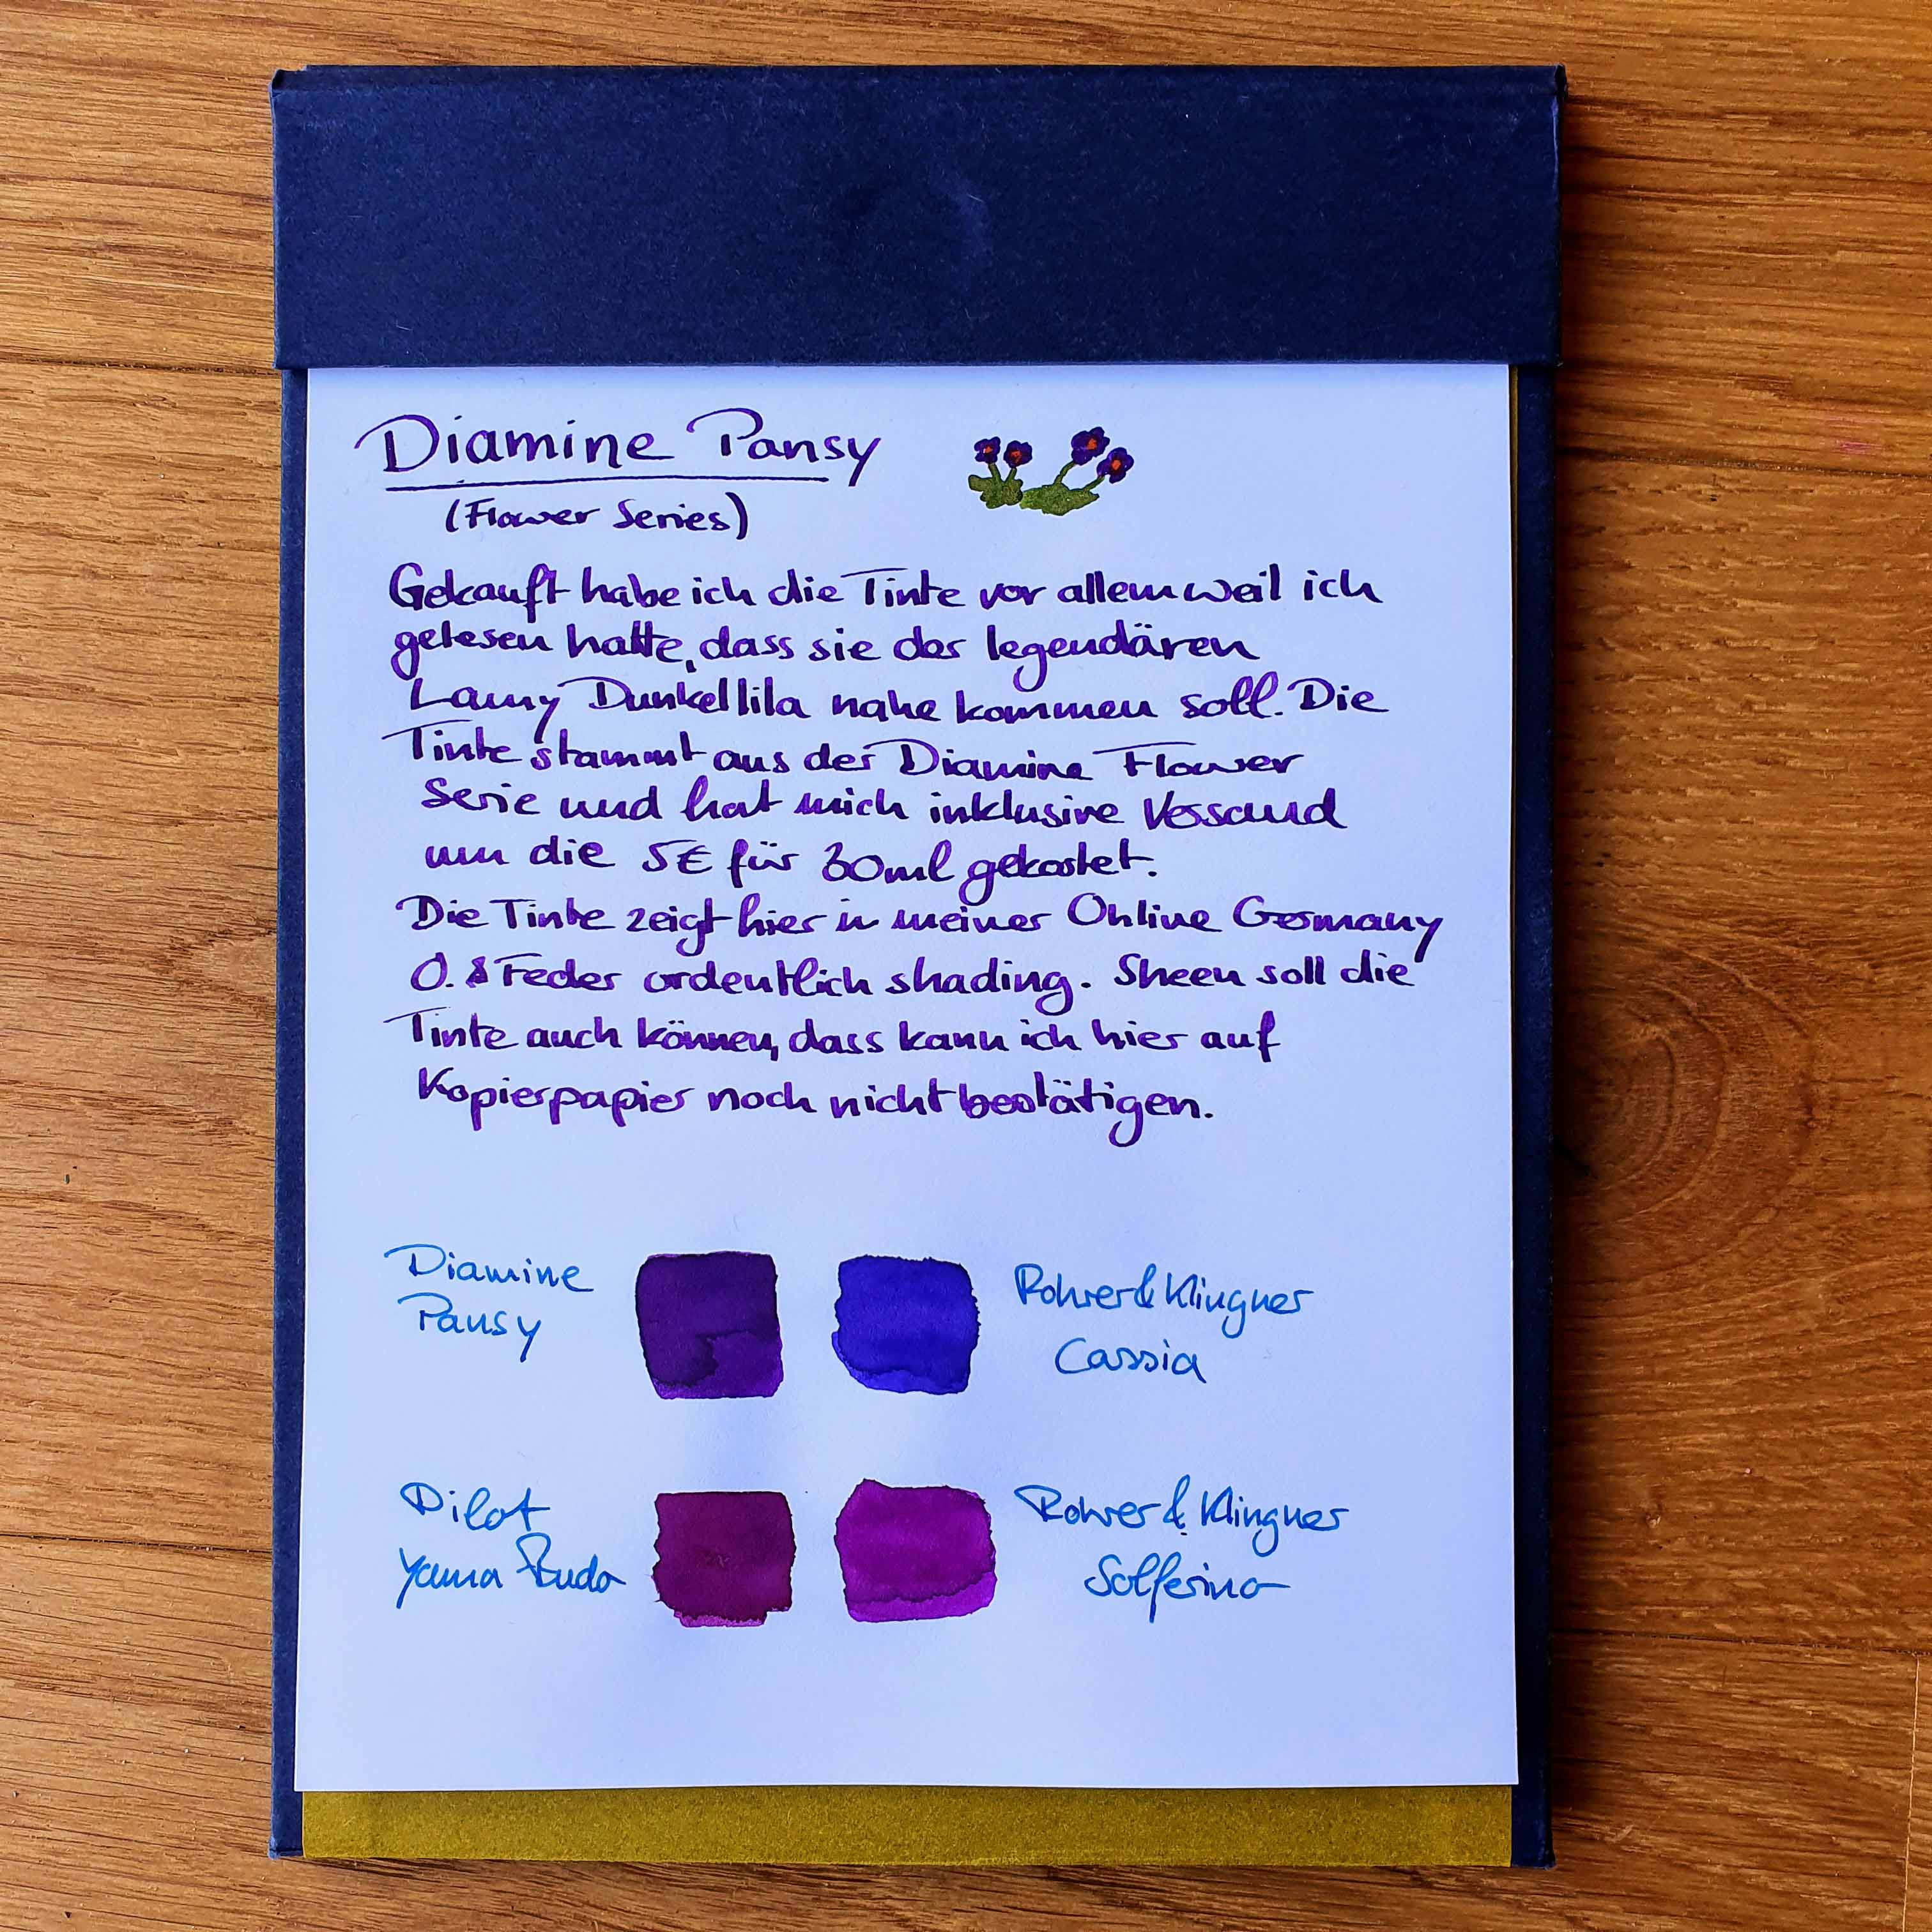 Diamine Pansy
(Flower Series)
Gekauft habe ich die Tinte vor allem weil ich
gelesen hatte, dass sie der legendären
Lamy Dunkellila nahe kommen soll. Die
Tinte stammt aus der Diamine Flower
Serie und hat mich inklusive Versand
um die 5€ für 30ml gekostet.
Die Tinte zeigt hier in meiner Online Germany
0.8 Feder ordentlich shading. Sheen soll die
Tinte auch können, dass kann ich hier auf
Kopierpapier noch nicht bestätigen.
Diamine
Pansy
Rohrer & Klingner
Cassia
Pilot
Yama Budo
Rohrer & Klingner
Solferino